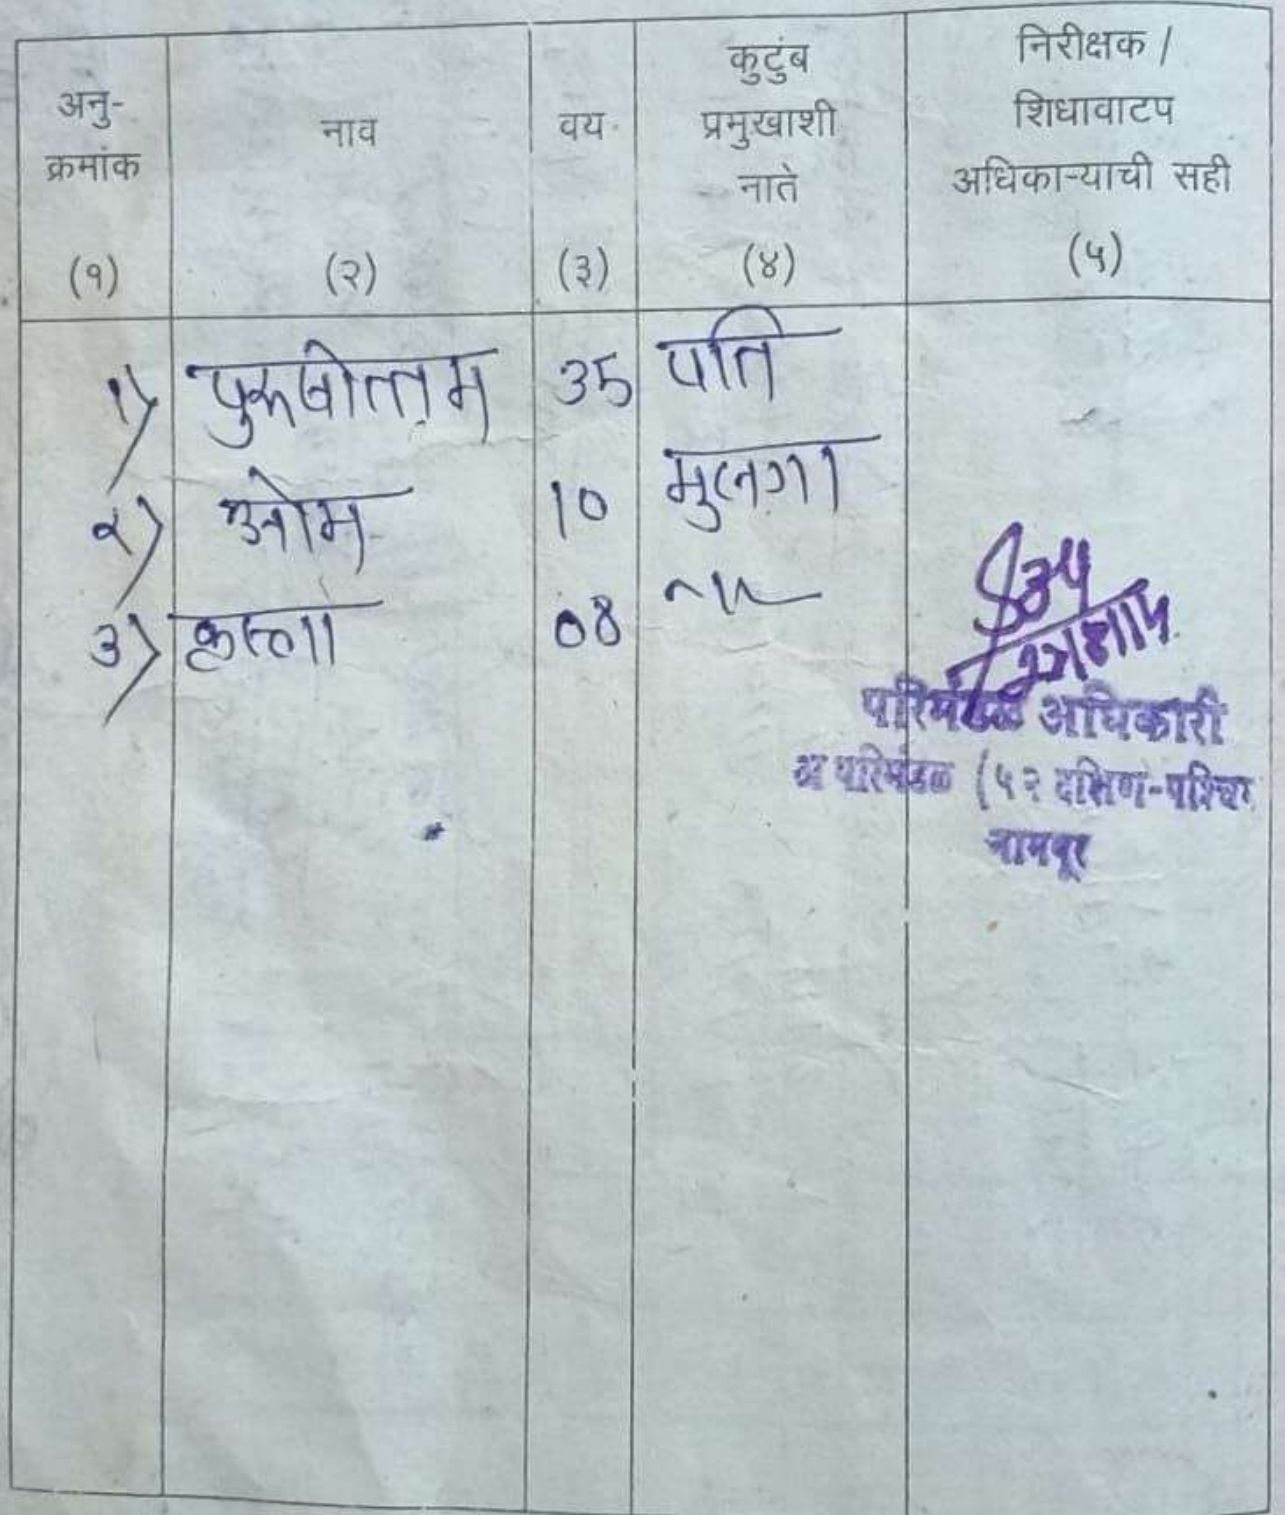 अनु-
क्रमांक
(१)
नाव
(२)
वय
(३)
कुटुंब
प्रमुखाशी
नाते
(४)
निरीक्षक /
शिधावाटप
अधिकाऱ्याची सही
(५)
१) पुरूषोत्तम 35 पति
२) ओम 10 मुलगा
३) कृष्णा 08 —॥—
परिमंडळ अधिकारी
अ परिमंडळ (५२ दक्षिण-पश्चिम
नागपूर